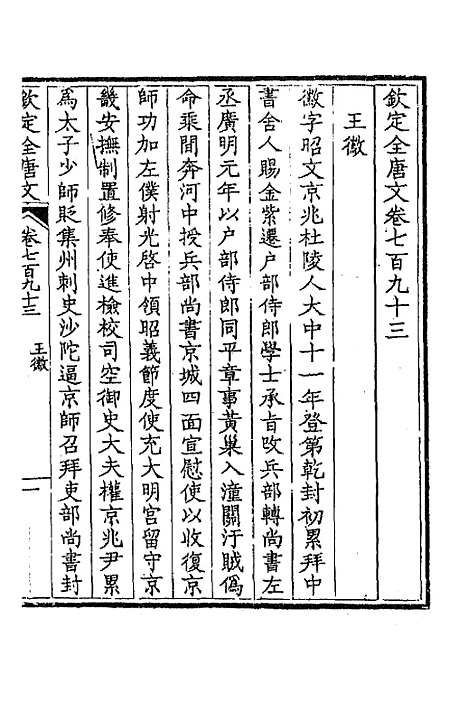 欽定全唐文卷七百九十三
王徽
徽字昭文京兆杜陵人大中十一年登第乾封初累拜中
書舍人賜金紫遷户部侍郎學士承旨改兵部轉尚書左
丞廣明元年以户部侍郎同平章事黃巢入潼關汙賊偽
命乘間奔河中授兵部尚書京城四面宣慰使以收復京
師功加左僕射光啓中領昭義節度使充大明宮留守京
畿安撫制置修奉使進檢校司空御史大夫權京兆尹累
為太子少師貶集州刺史沙陀逼京師召拜吏部尚書封
欽定全唐文
卷七百九十三
王徽
一